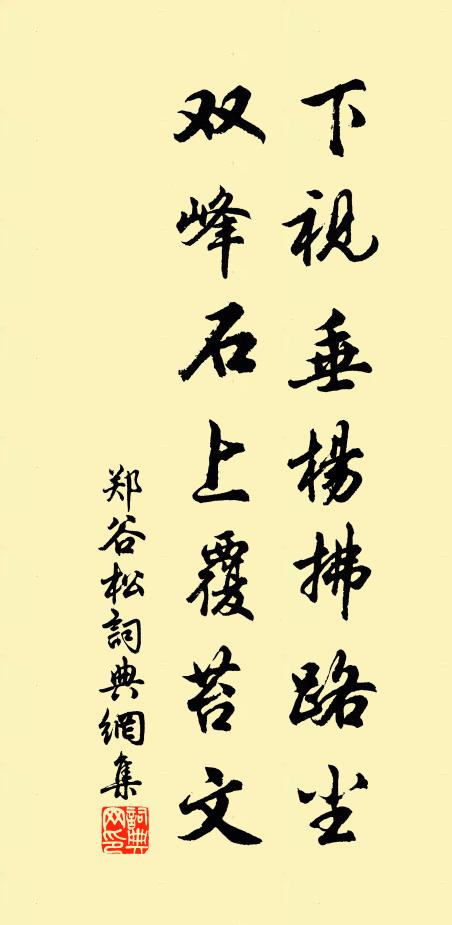 下视垂楊拂路尘
双峰石上覆苔文
郑谷松詞典網集
詞典网印